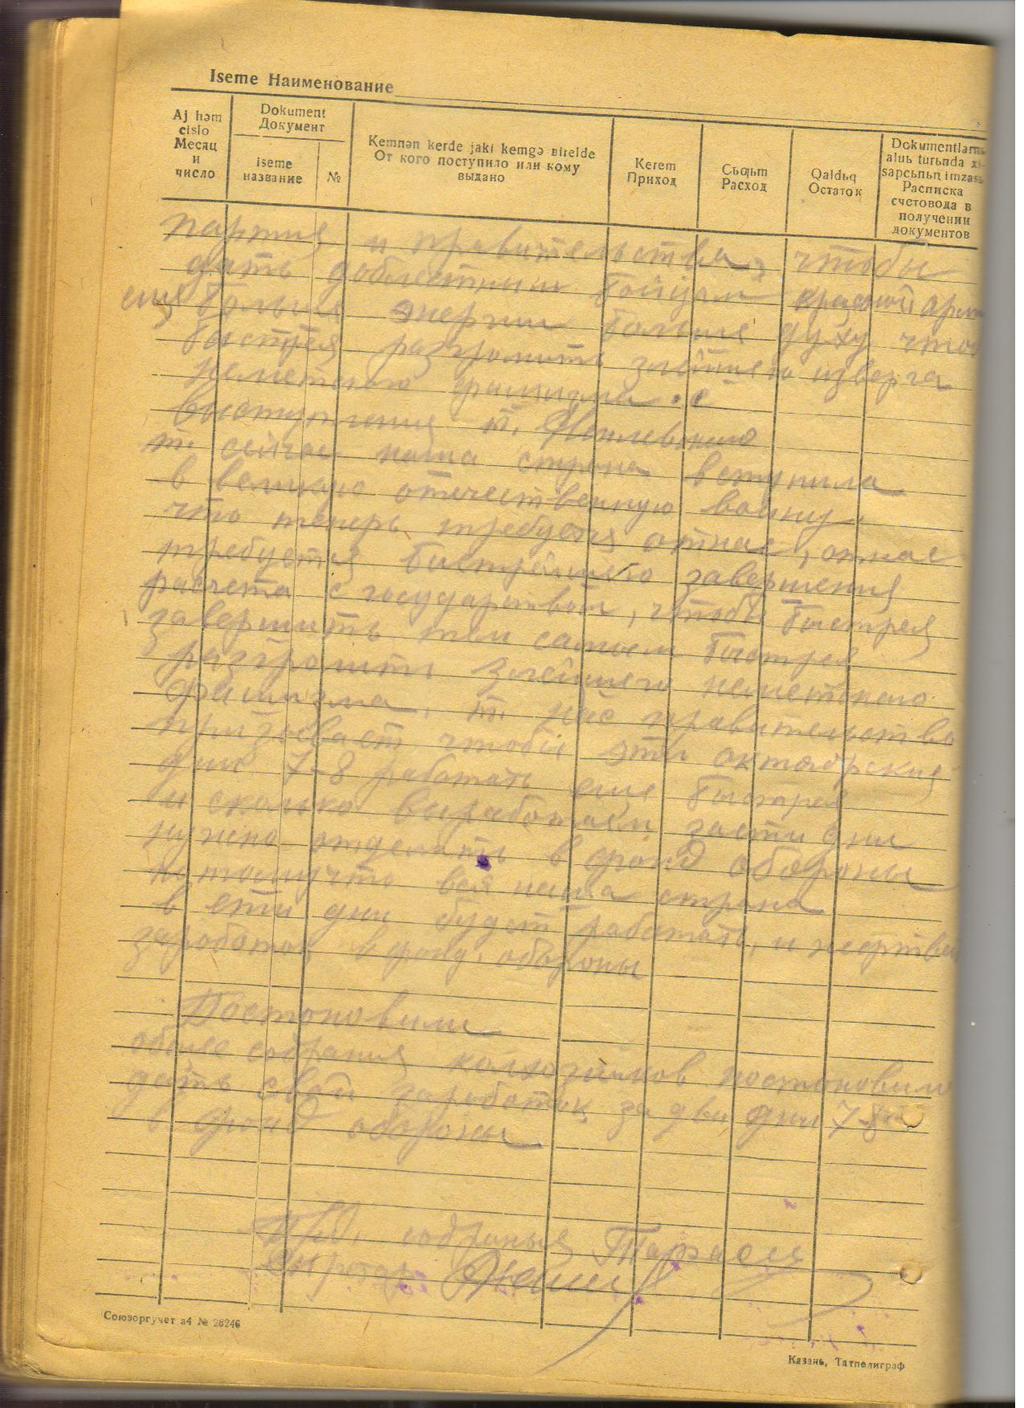 Iseme Наименование
Aj həm cislo Месяц и число
Dokument Документ
iseme название
№
Kemnən kerde jaki kemgə birelde От кого поступило или кому выдано
Kerem Приход
Cьƣьm Расход
Qaldьq Остаток
Расписка счетовода в получении документов
партия и правительства, чтобы
дать доблестным бойцам красной
еще больше энергии больше духу
быстрея разгромить злейшего изверга
неметского фашизма. с
выступления т.
т. сейчас наша страна вступила
в великую отечественную войну.
что теперь требуется отнас, отнас
требуется быстрейшего завершения
расчета с государством, чтобы быстрея
завершить тем самым быстрея
разгромить злейшего неметского
фашизма. т. нас правительство
призывает чтобы эти октябрские
дни 7-8 работать еще быстрея
и сколько выработаем засти дни
нужно отделить в фонд обороны
потомучто вся наша страна
в ети дни будет работать, и
заработок в фонд обороны
Постоновили
общее собрания колхозников постоновило
дать свой заработок за два дни 7-8
в фонд обороны
собранья
Союзоргучет а4 № 26246
Казань, Татполиграф